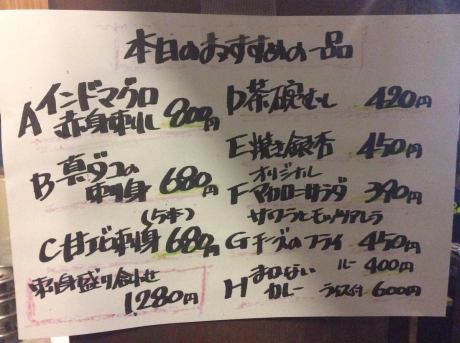 本日のおすすめの一品
A インドマグロ
赤身刺し 800円
B 真ダコの
刺身 680円
(5本)
C 甘エビ刺身 680円
刺身盛り合わせ
1,280円
D 茶碗むし 420円
E 焼き銀杏 450円
オリジナル
F マカロニサラダ 390円
サワラとモッツァレラ
G チーズのフライ 450円
H まかない ルー 400円
カレー ライス付 600円